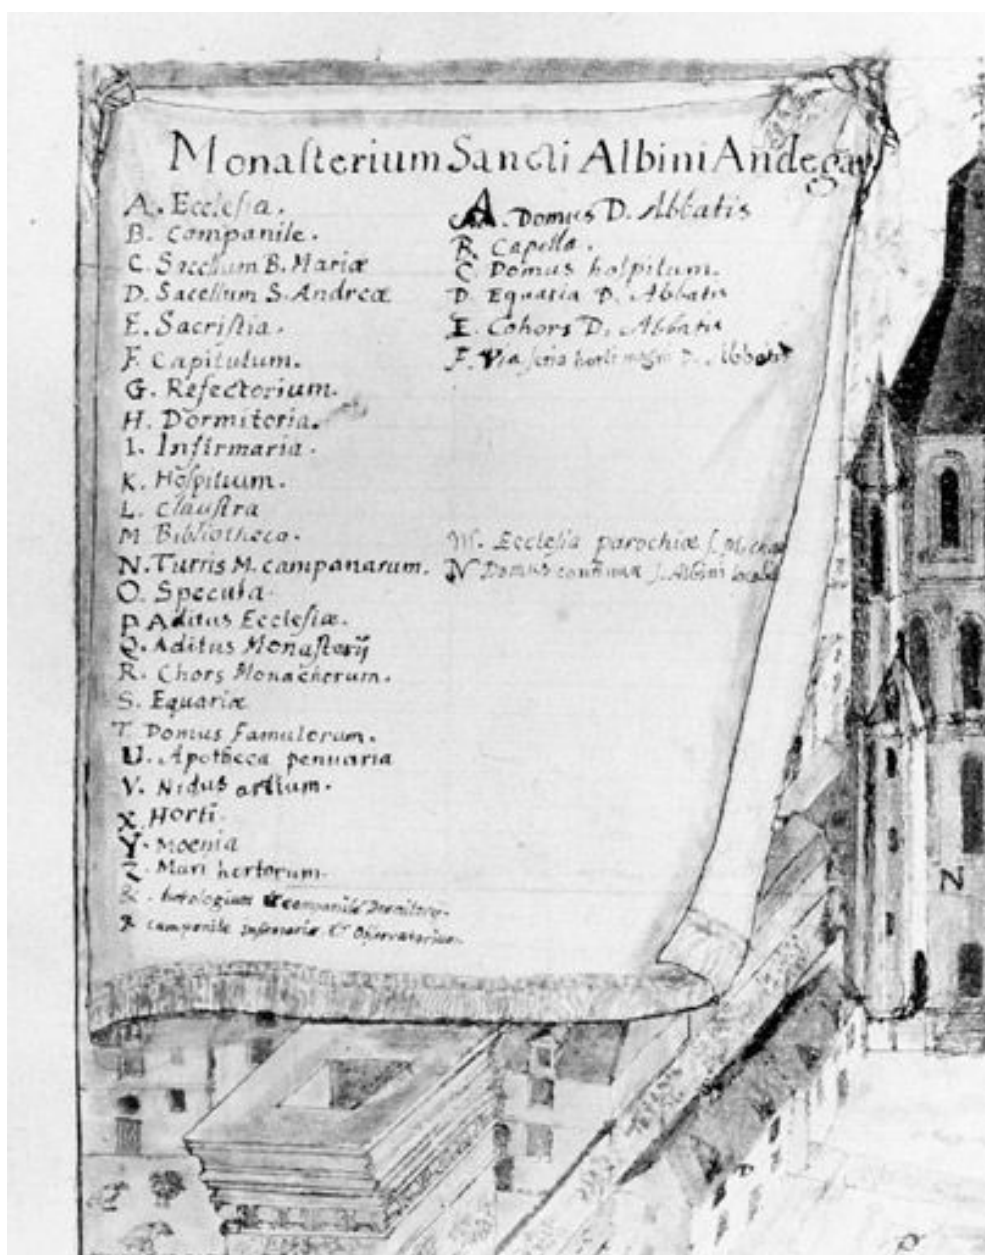 Monasterium Sancti Albini Andega
A. Ecclesia.
B. Companile.
C. Sacellum B. Mariæ
D. Sacellum S. Andreæ
E. Sacristia.
F. Capitulum.
G. Refectorium.
H. Dormitoria.
I. Infirmaria.
K. Hospitium.
L. Claustra
M. Bibliotheca.
N. Turris M. campanarum.
O. Specula.
P. Aditus Ecclesiæ.
Q. Aditus Monasterij
R. Chors Monachorum.
S. Equariæ
T. Domus Famulorum.
U. Apotheca penuaria
V. Nidus artium.
X. Horti.
Y. Moenia
Z. Muri hortorum.
&. horologium & companile Dormitorii
campanile infirmariæ & Observatorium
A. Domus D. Abbatis
B. Capella.
C Domus hospitum.
D. Equaria D. Abbatis
E. Cohors D. Abbatis
F. Via horti magni D. Abbatis
M. Ecclesia parochiæ S.
N Domus S. Albini
N